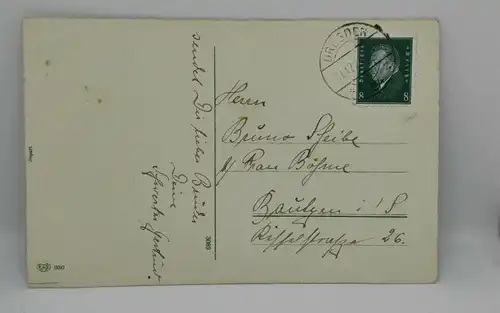 sendet Dir lieber Bruder
Deine
Schwester Gertrud.
DRESDEN
8 8
Herrn
Bruno Scheibe
b/ Frau Böhme
Bautzen i/S
Risselstrasse 26.
3065
990